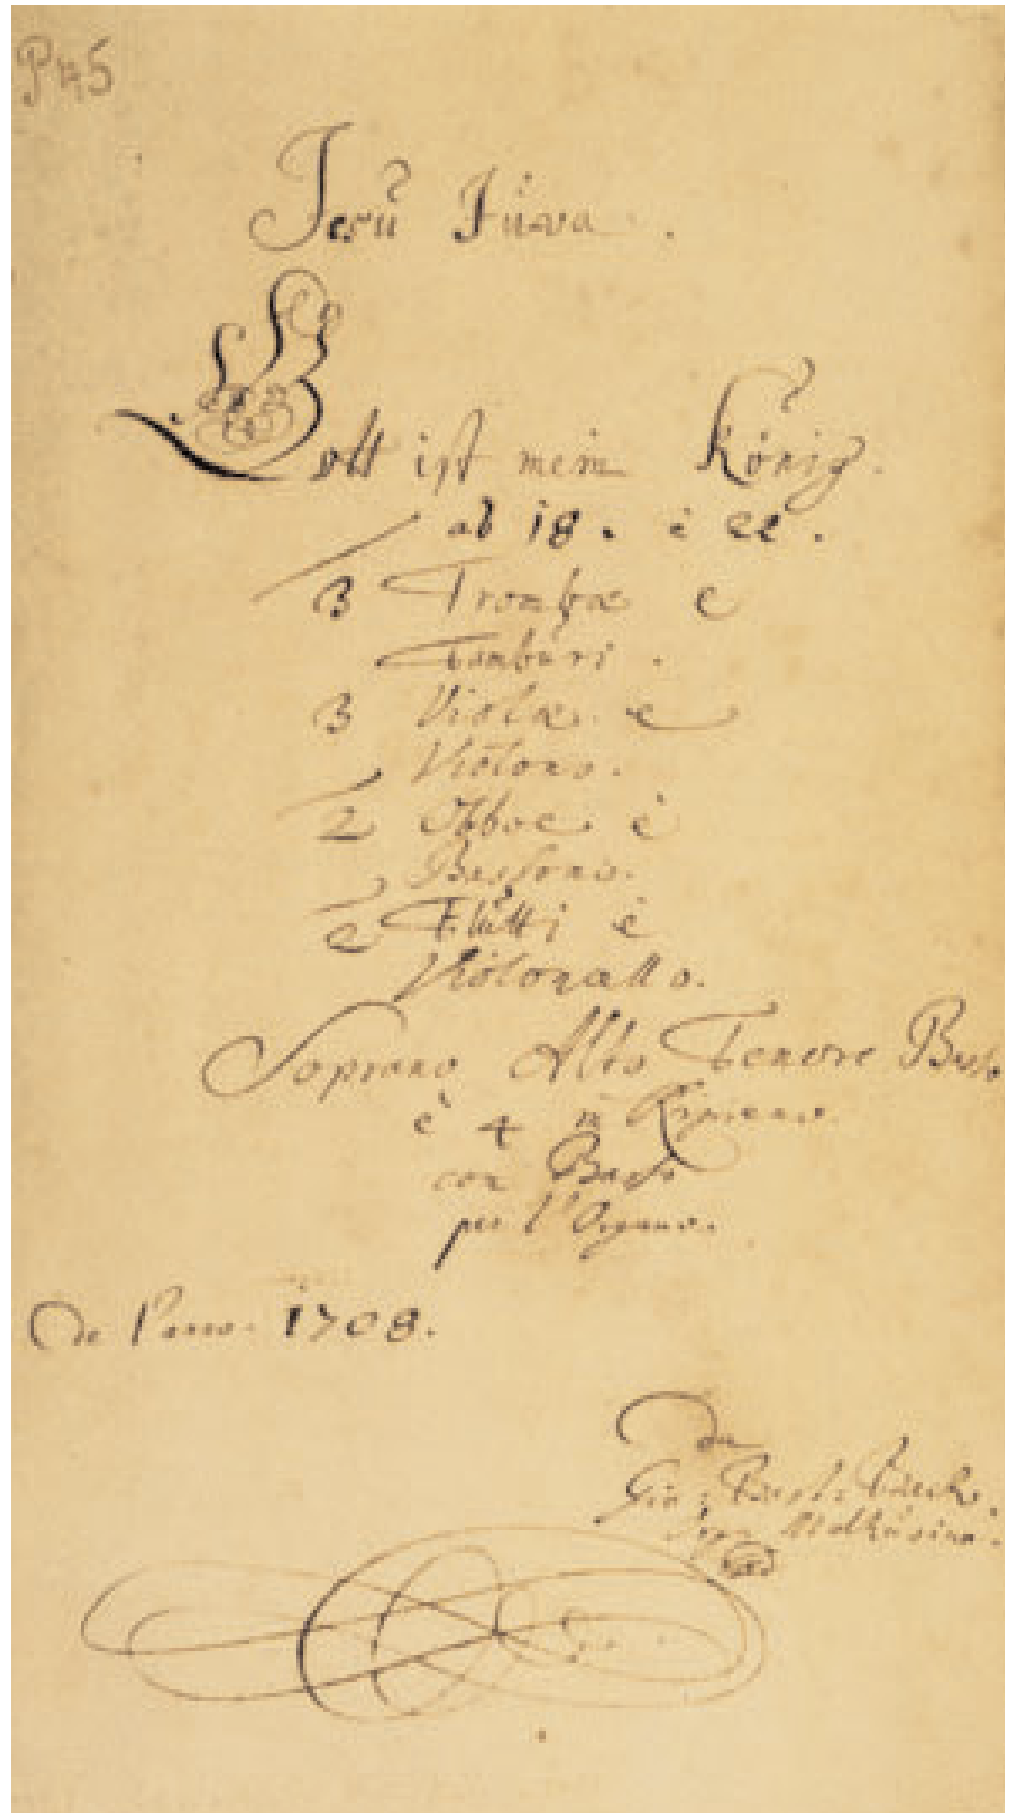 P 45
Jesu Juva.
Gott ist mein König.
ab 18. è 22.
3 Trombæ e
Tamburi.
3 Violæ. e
Violono.
2 Obboe è
Bassono.
2 Flutti è
Violoncello.
Soprano Alto Tenore Basso
è 4 in Ripieno.
con Basso
per l'Organo.
De l'anno. 1708.
da
Gio: Bast: Bach.
Org: Molhusino.